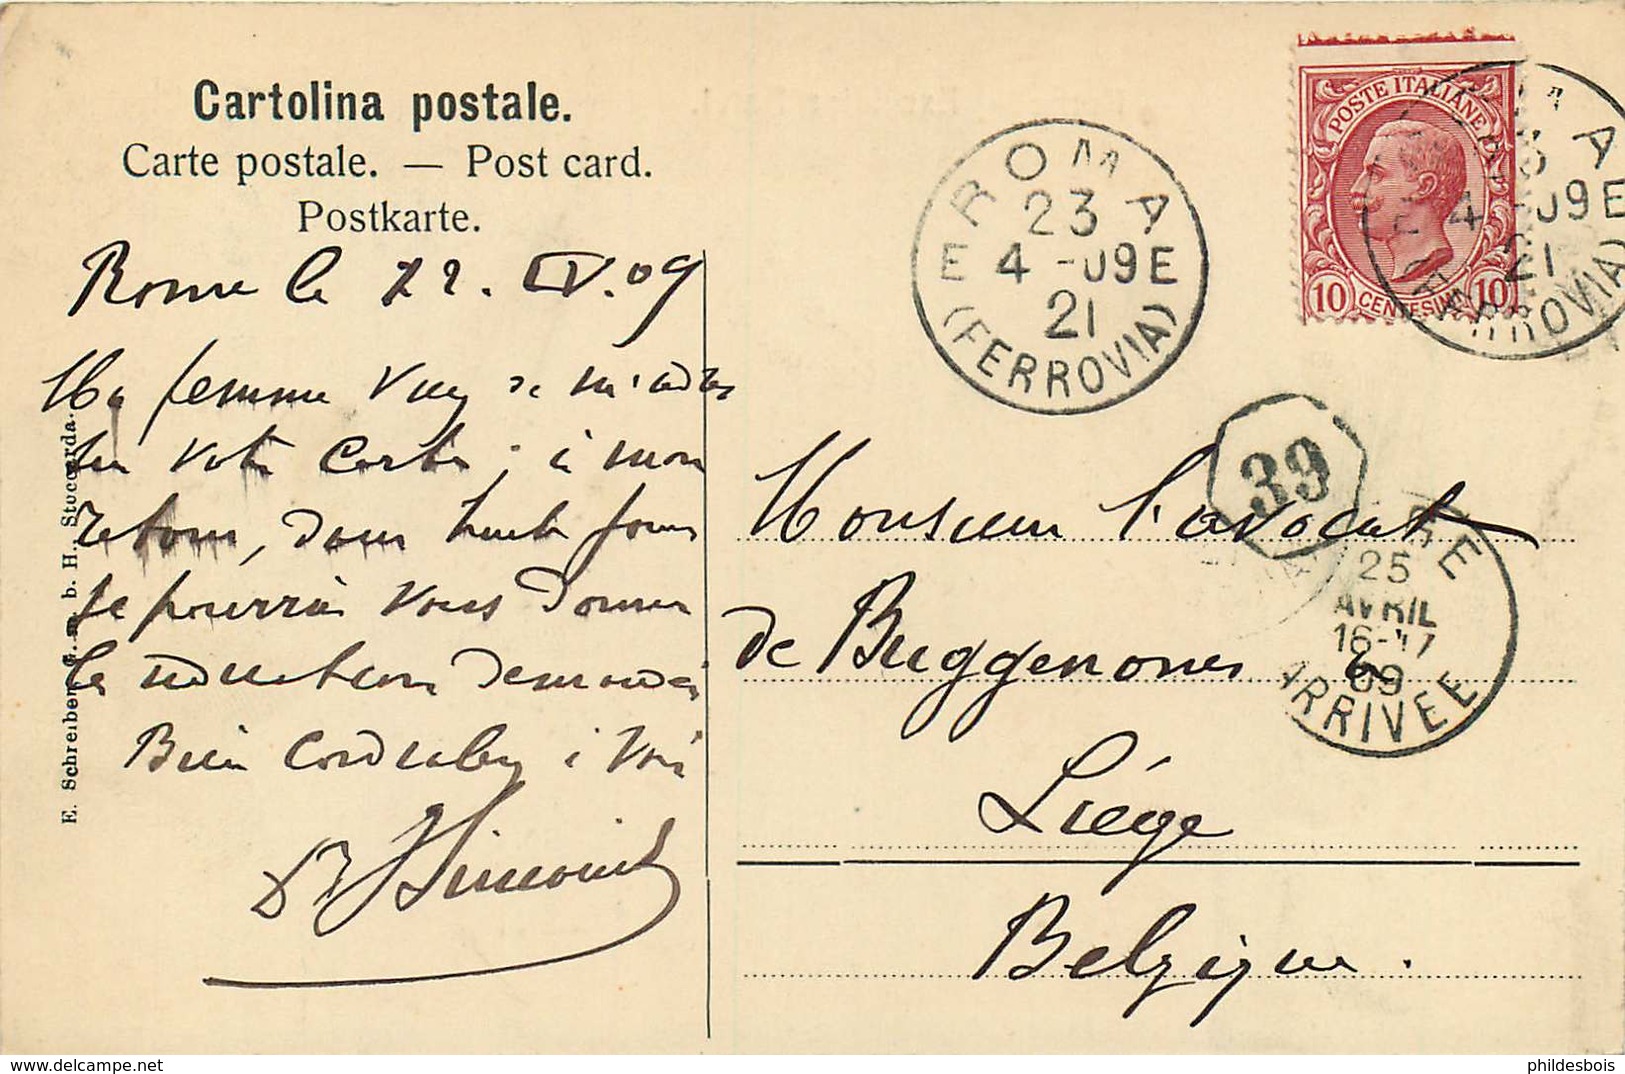 Cartolina postale.
Carte postale. — Post card.
Postkarte.
Rome le 22. IV. 09
Ma femme vient de m'adresser
votre carte; à mon
retour, dans huit jours
je pourrai vous donner
la réduction demandée
Bien cordialement à vous
Dr
E. Schreiber G. m. b. H. Stoccarda.
POSTE ITALIANE
10 CENTESIMI 10
ROMA
23
4 -09E
21
(FERROVIA)
4 -09E
21
39
25
AVRIL
16-17
09
ARRIVEE
Monsieur l'avocat
de Buggenoms
Liége
Belgique.
phildesbois